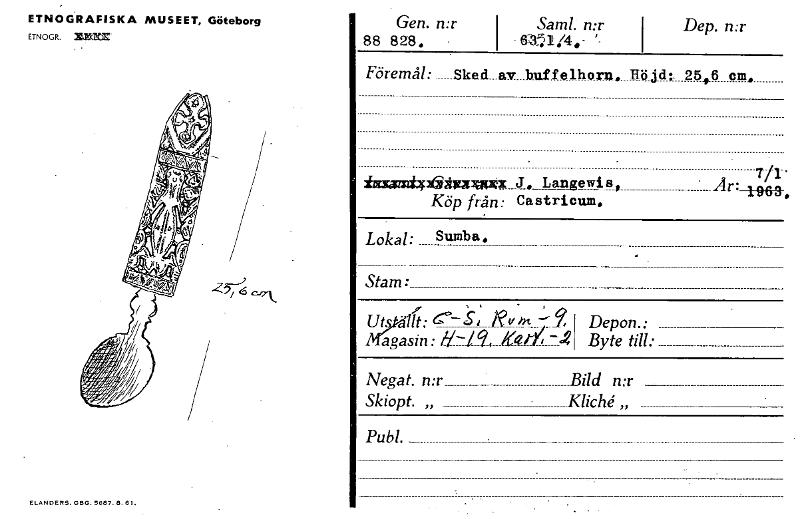 ETNOGRAFISKA MUSEET, Göteborg
ETNOGR.
25,6 cm
ELANDERS. GBG. 5687. 8. 61.
Gen. n:r Saml. n:r Dep. n:r
88 828. 63.1/4.
Föremål: Sked av buffelhorn. Höjd: 25,6 cm.
J. Langewis, År: 7/1 1963.
Köp från: Castricum.
Lokal: Sumba.
Stam:
Utställt: C-S. Rum - 9. Depon.:
Magasin: H-19. Kart. - 2 Byte till:
Negat. n:r Bild n:r
Skiopt. „ Kliché „
Publ.